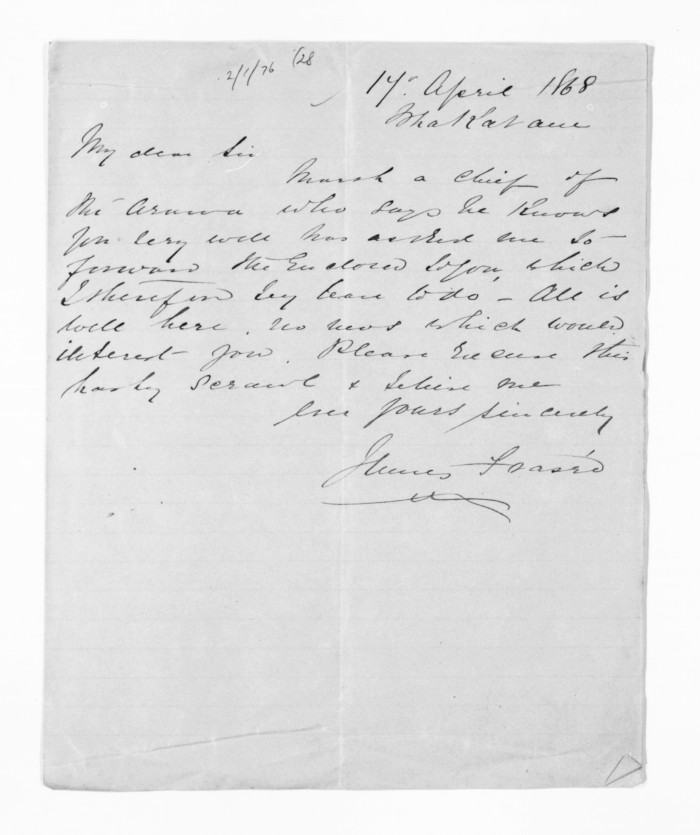 2/1/76 (28
17th April 1868
Whakatane
My dear Sir
Marsh a chief of
the Arawa who says he knows
you very well has asked me to
forward the Enclosed to you, which
I therefore beg leave to do - All is
well here, no news which would
interest you. Please Excuse this
hasty scrawl & believe me
Ever yours sincerely
James Fraser